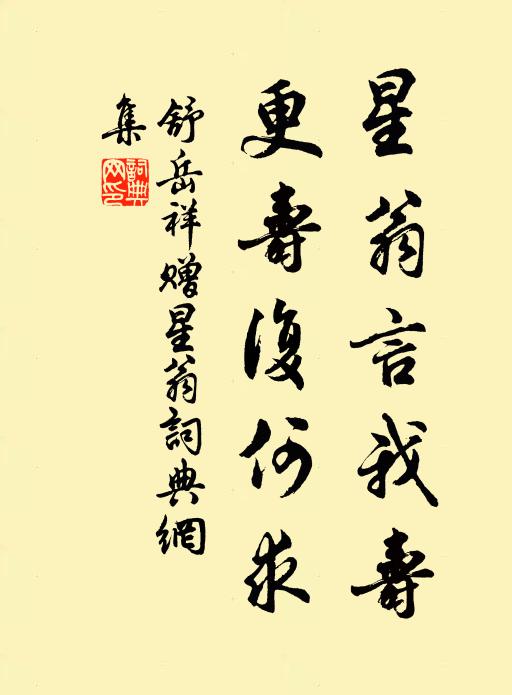 星翁言我壽
更壽復何求
舒岳祥贈星翁詞典網
集
詞典
网印